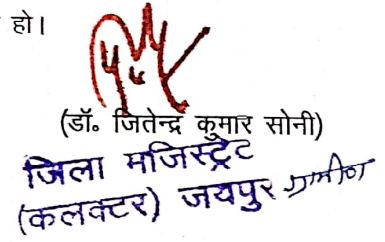 हो।
(डॉ० जितेन्द्र कुमार सोनी)
जिला मजिस्ट्रेट
(कलक्टर) जयपुर ग्रामीण